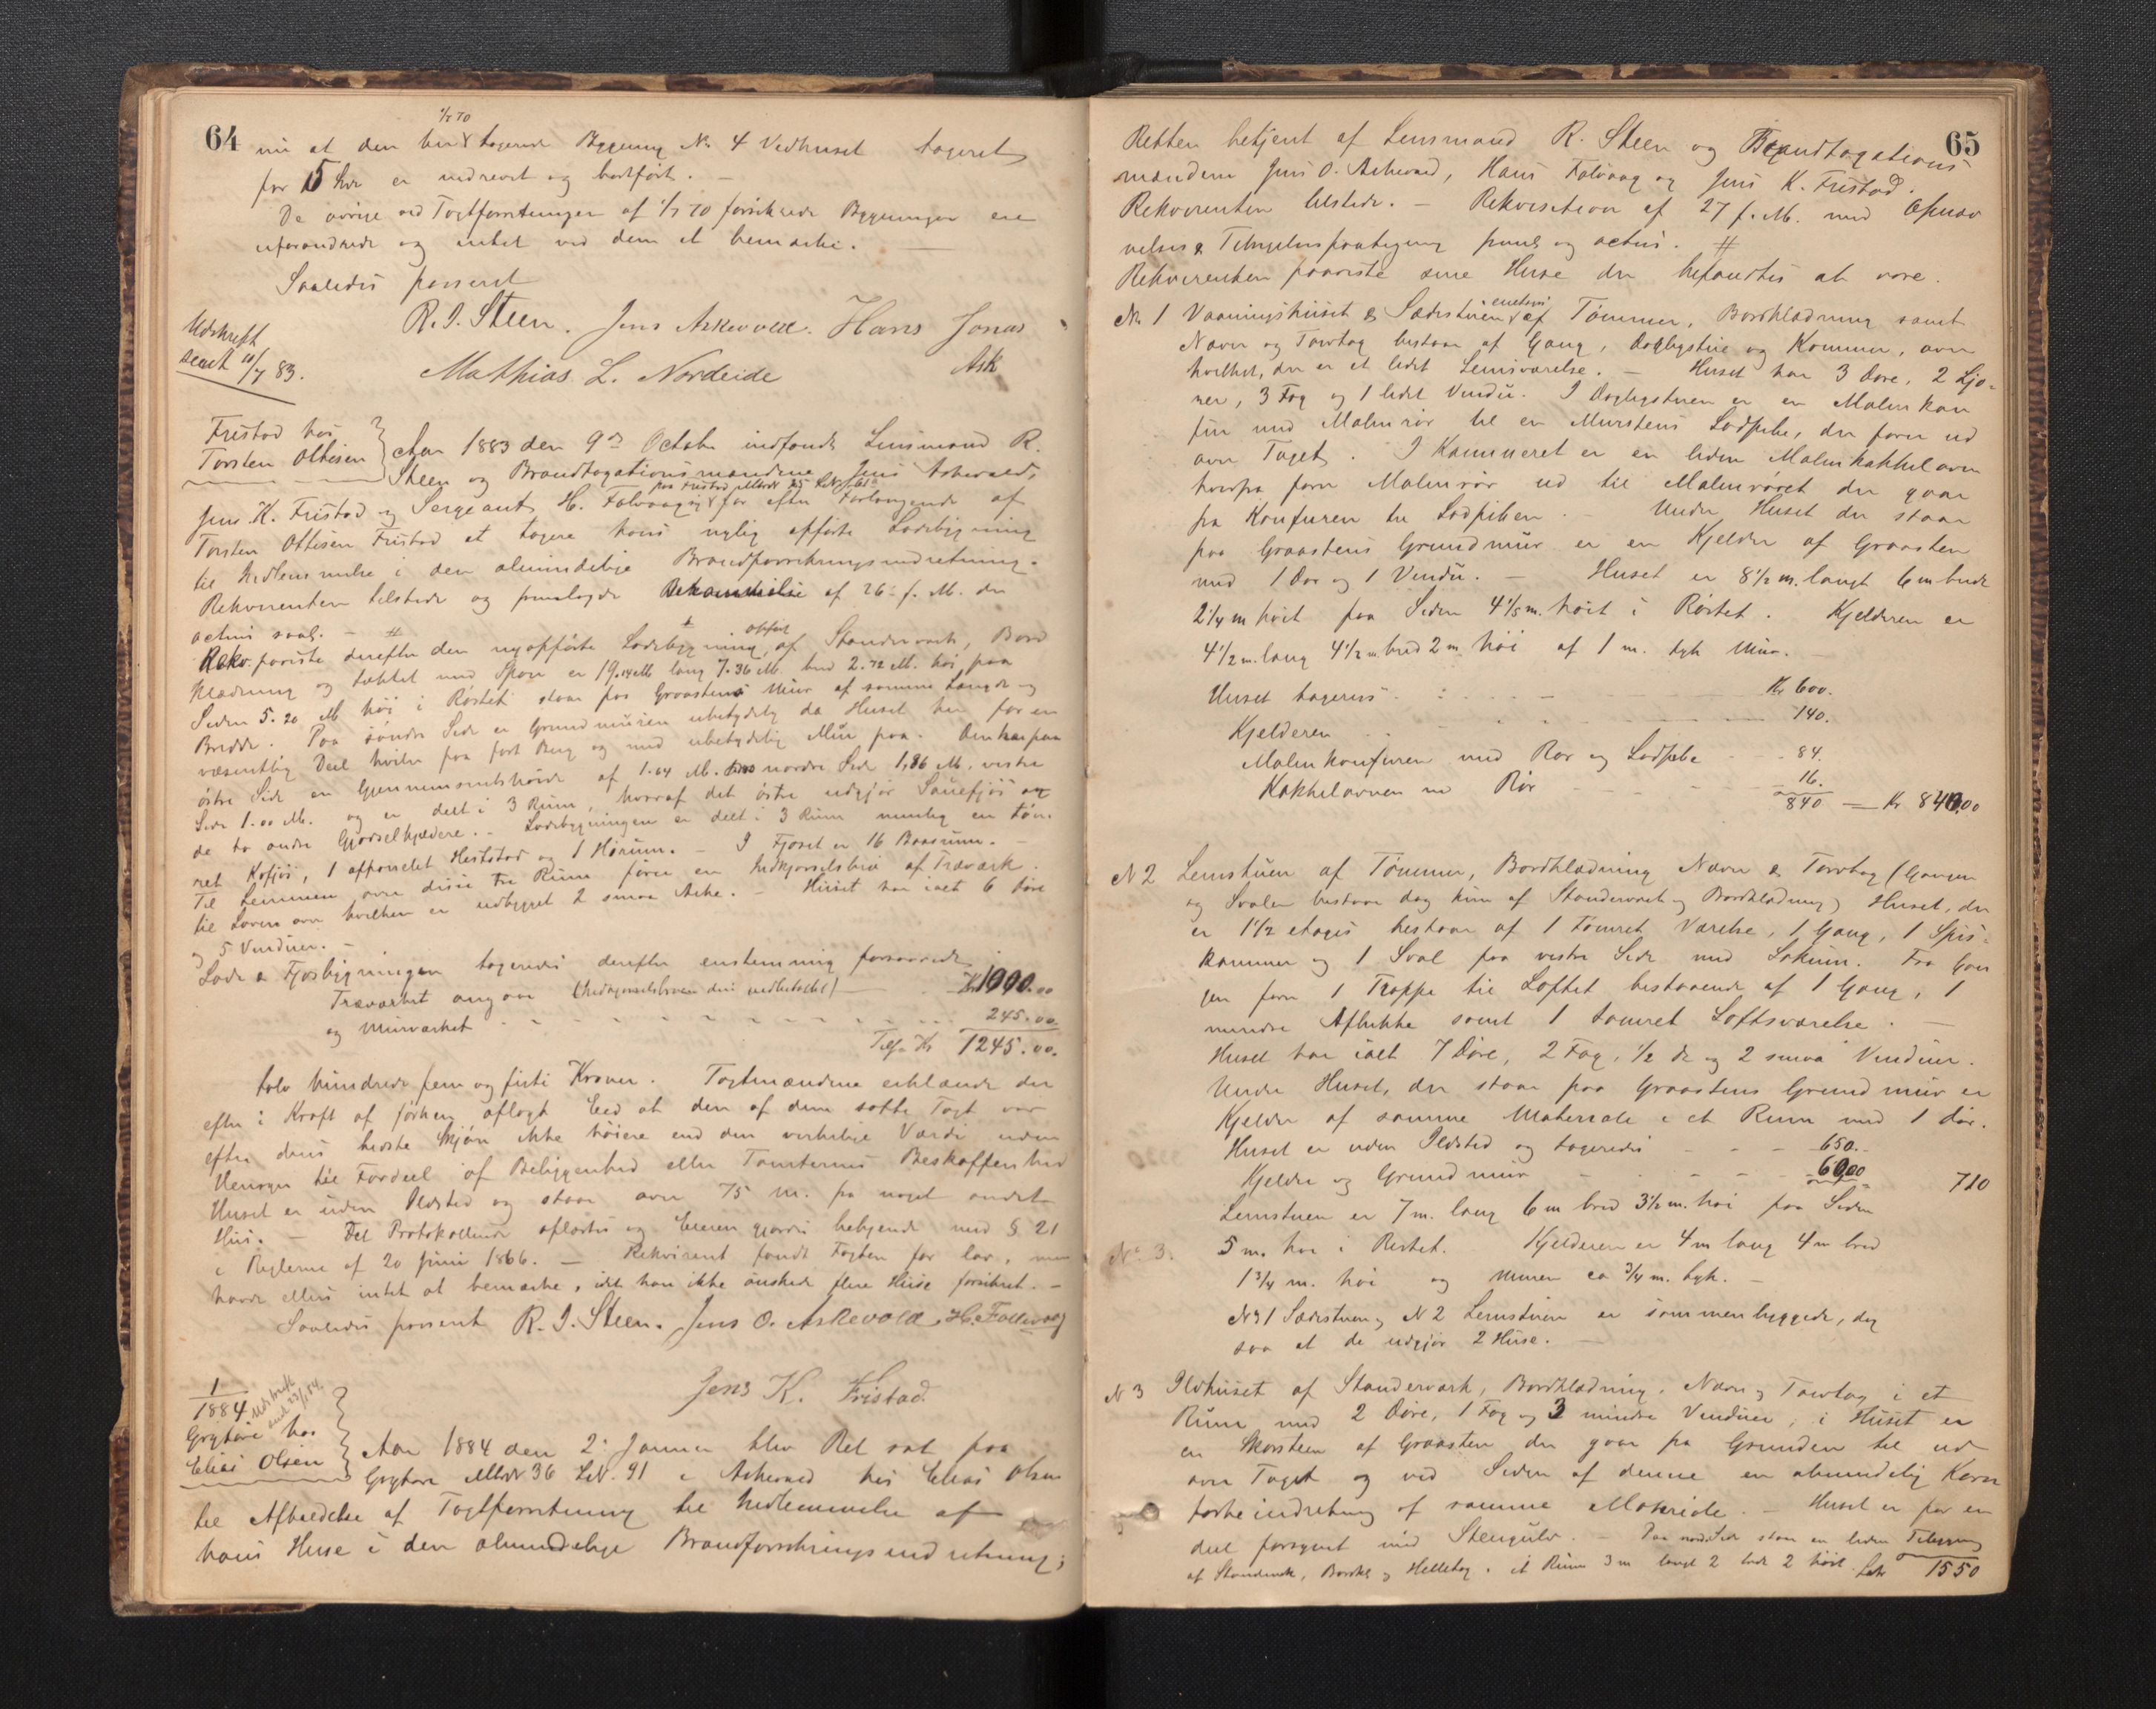 64
1/7 70
nu at den hun tagerede Bygning No 4 Vedhuset tageret
for 15 Kr er nedrevet og bortført. –
De øvrige ved Taxtforretningen af 1/7 70 forsikrede Bygninger ere
uforandrede og intet ved dem at bemærke. –
Saaledes passeret
R. I. Steen. Jens Askevold. Hans Jonas
Ask
Mathias L. Nordeide
Udskrift
sendt 10/7 83.
Fristad hos
Torsten Ottesen
Aar 1883 den 9de October indfandt Lensmand R.
Steen og Brandtaxationsmændene Jens Askevold,
Jens K. Fristad og Sergeant H. Folevaag sig for efter Forlangende af
Torsten Ottesen Fristad at taxere hans nylig opførte Ladebygning
til Indlemmelse i den almindelige Brandforsikringsindretning.
Rekvirenten tilstede og fremlagde af 26 f. M. der
acteres saal. – #
Rekv. paaviste derefter den nyopførte Ladebygning, opført af Standerværk, Bord
klædning og tækket med Spon er 19.14 M. lang 7.36 M. bred 2.72 M. høi paa
Siden 5.20 M. høi i Røstet staar paa Graastens Muur af samme Længde og
Bredde. Paa søndre Side er Grundmuuren ubetydelig da Huset her for en
væsentlig Deel hviler paa fast Berg og med ubetydelig Muur paa. Den har paa
østre Side en Gjennemsnitshøide af 1.64 M. nordre Side 1,86 M. vestre
Side 1.00 M. og er deelt i 3 Rum, hvoraf det østre udgjør Sauefjøs og
de to andre Gjødselkjeldere. – Ladebygningen er deelt i 3 Rum nemlig en tøm-
ret Kofjøs, 1 afpanelet Heststad og 1 Hørum. – I Fjøset er 16 Baasrum. –
Til Lemmen over disse tre Rum fører en Indkjørselsbro af Træværk
til Laven over hvilken er udbygget 2 smaa Arke. – Huset har ialt 6 Døre
og 5 Vinduer. –
Lade & Fjøsbygningen taxeredes derefter enstemmig forsaavidt
Træværket angaar (Indkjørselsbroen deri medbetaget) – Kr 1000.00
og Muurværket – – – – 245.00
Tils. Kr 1245.00.
tolv hundrede fem og firti Kroner. Taxtmændene erklærede der
efter i Kraft af forhen aflagt Eed at den af dem satte Taxt var
efter deres bedste Skjøn ikke høiere end den virkelige Værdi uden
Hensyn til Fordeel af Beliggenhed eller Tomternes Beskaffenhed
Huset er uden Ildsted og staar over 75 M. fra noget andet
Huus. – Det Protokollerede oplæstes og Eieren gjordes bekjendt med § 21
i Reglerne af 20 Juni 1866. – Rekvirent fandt Taxten for lav, men
havde ellers intet at bemærke, idet han ikke ønskede flere Huse forsikret. –
Saaledes passeret R. I. Steen. Jens O. Askevold. H. Follevaag
Jens K. Fristad
1/1884
Udskrift
Grytøre hos
Elias Olsen
Aar 1884 den 2. Januar blev Ret sat paa
Grytøre MNo 36 LN. 91 i Askevold hos Elias Olsen
til Afholdelse af Taxtforretning til Indlemmelse af
hans Huse i den almindelige Brandforsikringsindretning;
65
Retten betjent af Lensmand R. Steen og Brandtaxations
mændene Jens O. Askevold, Hans Folevaag og Jens K. Fristad.
Rekvirenten tilstede. – Rekvisition af 27 f. M. med Opnæv
nelses & Tilsigelsespaategning freml. og acteres. #
Rekvirenten paaviste sine Huse der befandtes at være.
No 1 Vaaningshuset & Sædestuen enetages af Tømmer, Bordklædning samt
Næver og Torvtag bestaar af Gang, Dagligstue og Kammer, over
hvilket, der er et lidet Lemsværelse. – Huset har 3 Døre, 2 Ljo-
rer, 3 Fag og 1 lidet Vindu. I Dagligstuen er en Malmkon
fur med Malmrør til en Murstens Ladpibe, der fører ud
over Taget. I Kammeret er en liden Malmkakkelovn
hvorfra fører Malmrør ud til Malmrøret der gaar
fra Konfuren til Ladpiben. – Under Huset der staar
paa Graastens Grundmuur er en Kjelder af Graasten
med 1 Dør og 1 Vindu. – Huset er 8 1/2 m. langt 6 m bredt
2 1/4 m høit paa Siden 4 1/5 m. høit i Røstet. Kjelderen er
4 1/2 m. lang 4 1/2 m. bred 2 m høi af 1 m. tyk Muur.
Huset taxeres – – – Kr 600.
Kjelderen – – – 140.
Malmkonfuren med Rør og Ladpibe – – 84.
Kakkelovnen m Rør – – – 16.
840 — Kr 840.00
N 2 Lemstuen af Tømmer, Bordklædning Næver & Torvtag (Gangen
og Svalen bestaar dog kun af Standerværk og Bordklædning) Huset, der
er 1 1/2 etages bestaar af 1 tømret Værelse, 1 Gang, 1 Spis-
kammer og 1 Sval paa vestre Side med Lokum. Fra Gan
gen fører 1 Trappe til Loftet bestaaende af 1 Gang, 1
mindre Aflukke samt 1 tømret Loftsværelse. –
Huset har ialt 7 Døre, 2 Fag, 1/2 do og 2 smaa Vinduer.
Under Huset, der staar paa Graastens Grundmuur er
Kjelder af samme Materiale i et Rum med 1 Dør.
Huset er uden Ildsted og taxeredes – – – 650.–
Kjelder og Grundmuur – – – 60.00 710
Lemstuen er 7 m. lang 6 m bred 3 1/2 m. høi paa Siden
No 3.
5 m. høi i Røstet. Kjelderen er 4 m lang 4 m bred
1 3/4 m. høi og Muren ca 3/4 m. tyk. –
No 1 Sædestuen og N 2 Lemstuen er sammenbyggede, dog
saa at de udgjør 2 Huse. –
N 3 Ildhuset af Standerværk, Bordklædning, Næver og Torvtag i et
Rum med 2 Døre, 1 Fag og 3 mindre Vinduer, i Huset er
en Skorsteen af Graasten der gaar fra Grunden til ud
over Taget og ved Siden af denne en almindelig Korn
tørkeindretning af samme Materiale. – Huset er for en
deel forsynet med Steengulv. – Paa nordre Side staar en liden Tilbygning
af Standerværk, Bordkl. og Helletag. et Rum 3 m langt 2 bredt 2 høit. Lat. 1550